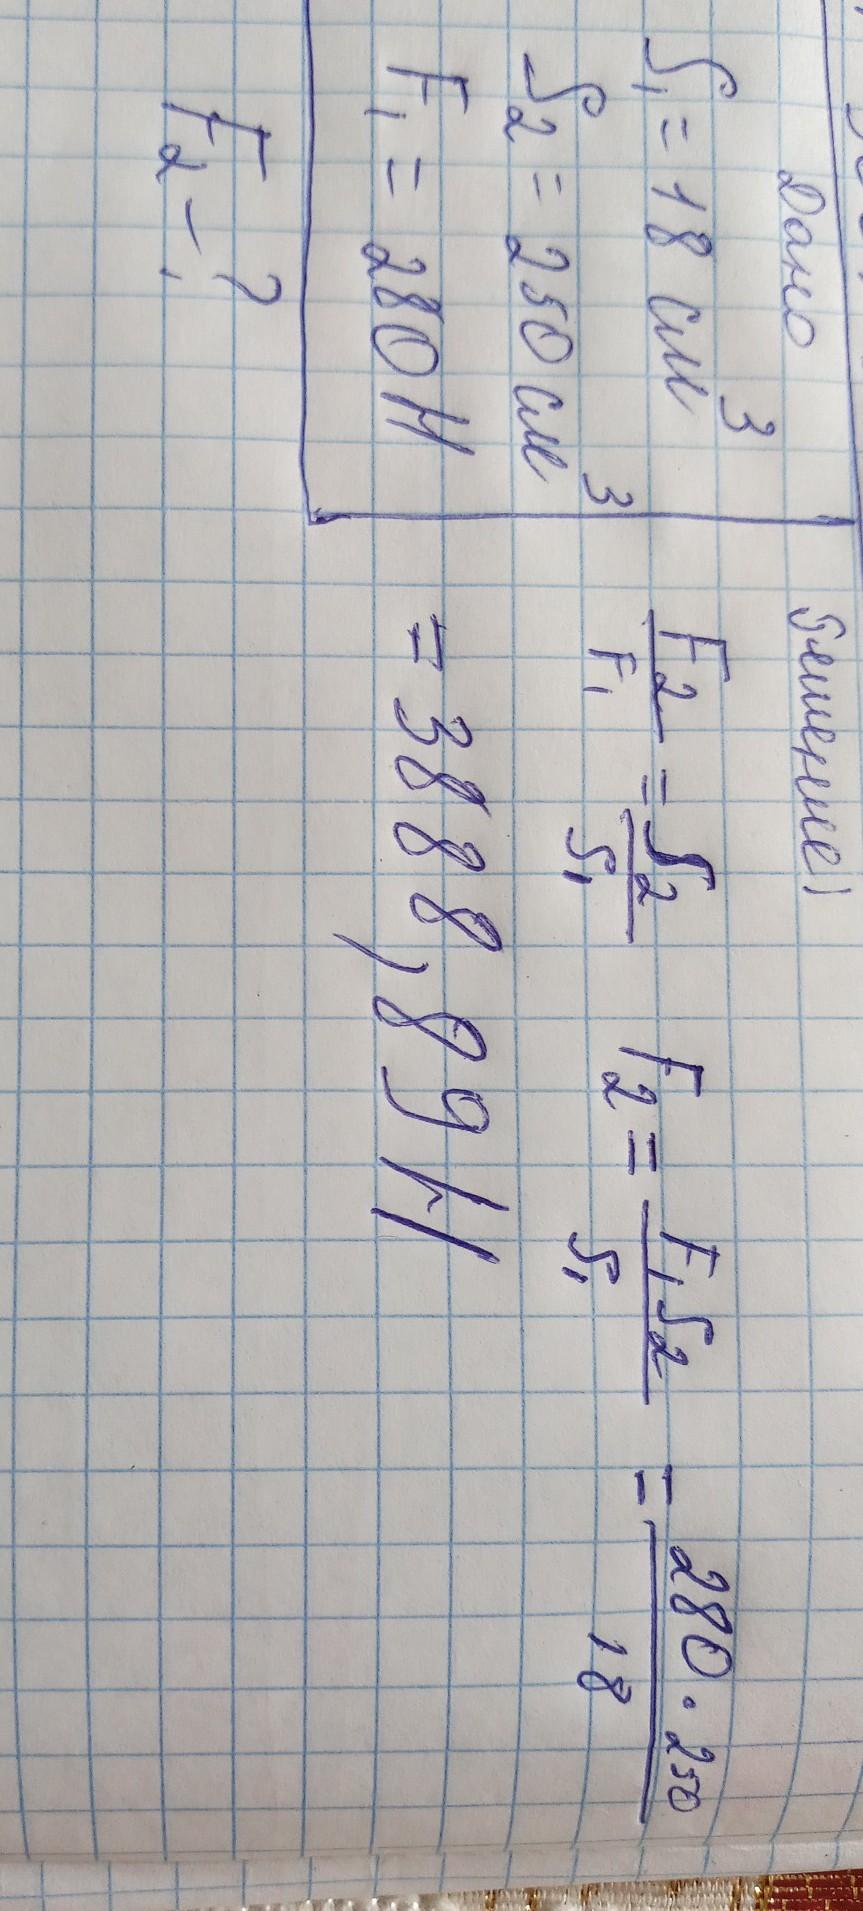 Дано
S₁ = 18 см³
S₂ = 250 см³
F₁ = 280 Н
F₂ - ?
Решение!
F₂/F₁ = S₂/S₁ F₂ = F₁S₂/S₁ = 280 · 250/18
= 3888,89 Н